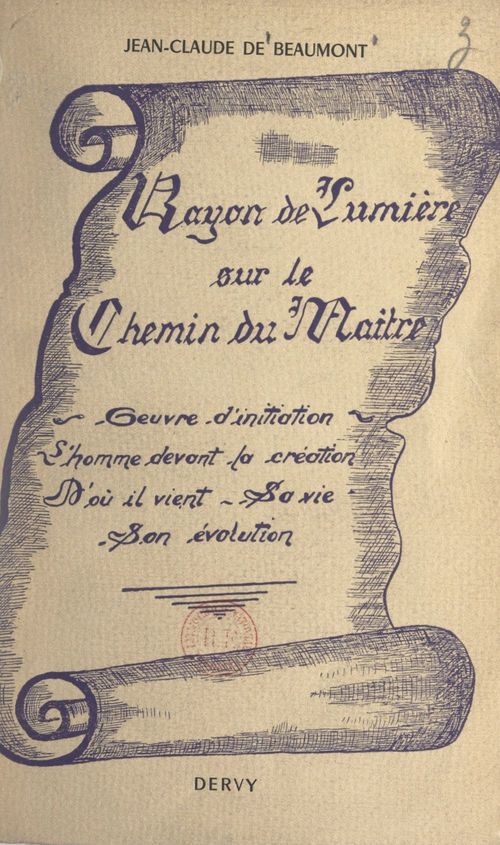 JEAN-CLAUDE DE BEAUMONT
3
Rayon de Lumière
sur le
Chemin du Maître
~ Oeuvre d'initiation ~
L'homme devant la création
D'où il vient - Sa vie -
- Son évolution
DERVY